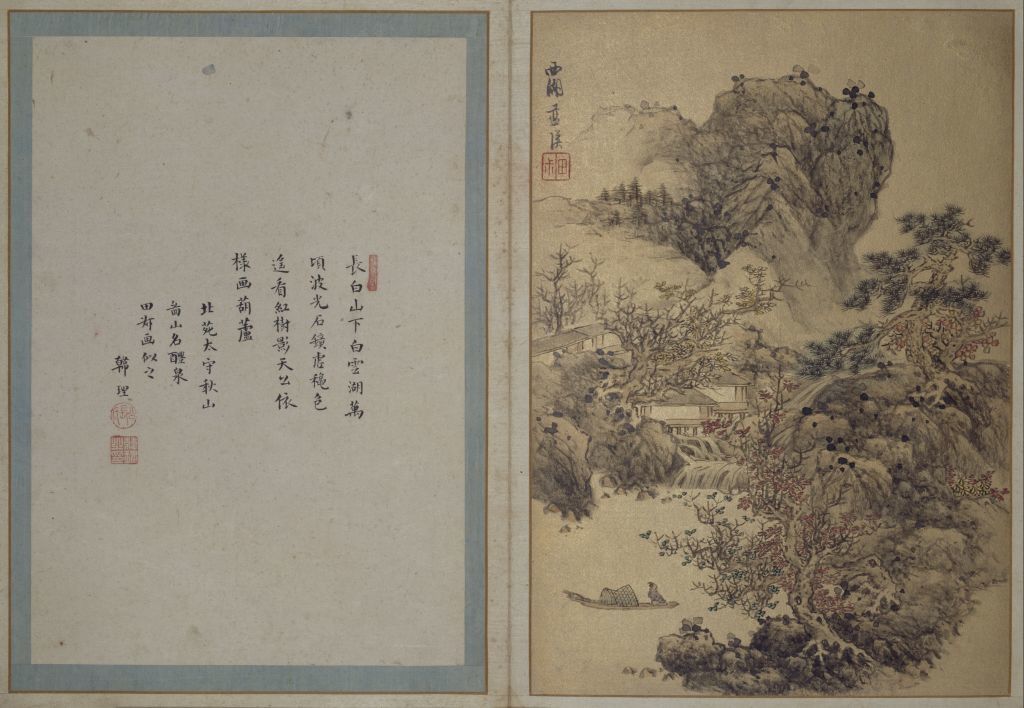 西湖藍瑛
田叔
長白山下白雲湖萬
頃波光石鏡虛穐色
遥看紅樹影天公依
樣画葫蘆
北苑太守秋山
山名醴泉
田叔画似之
韓理